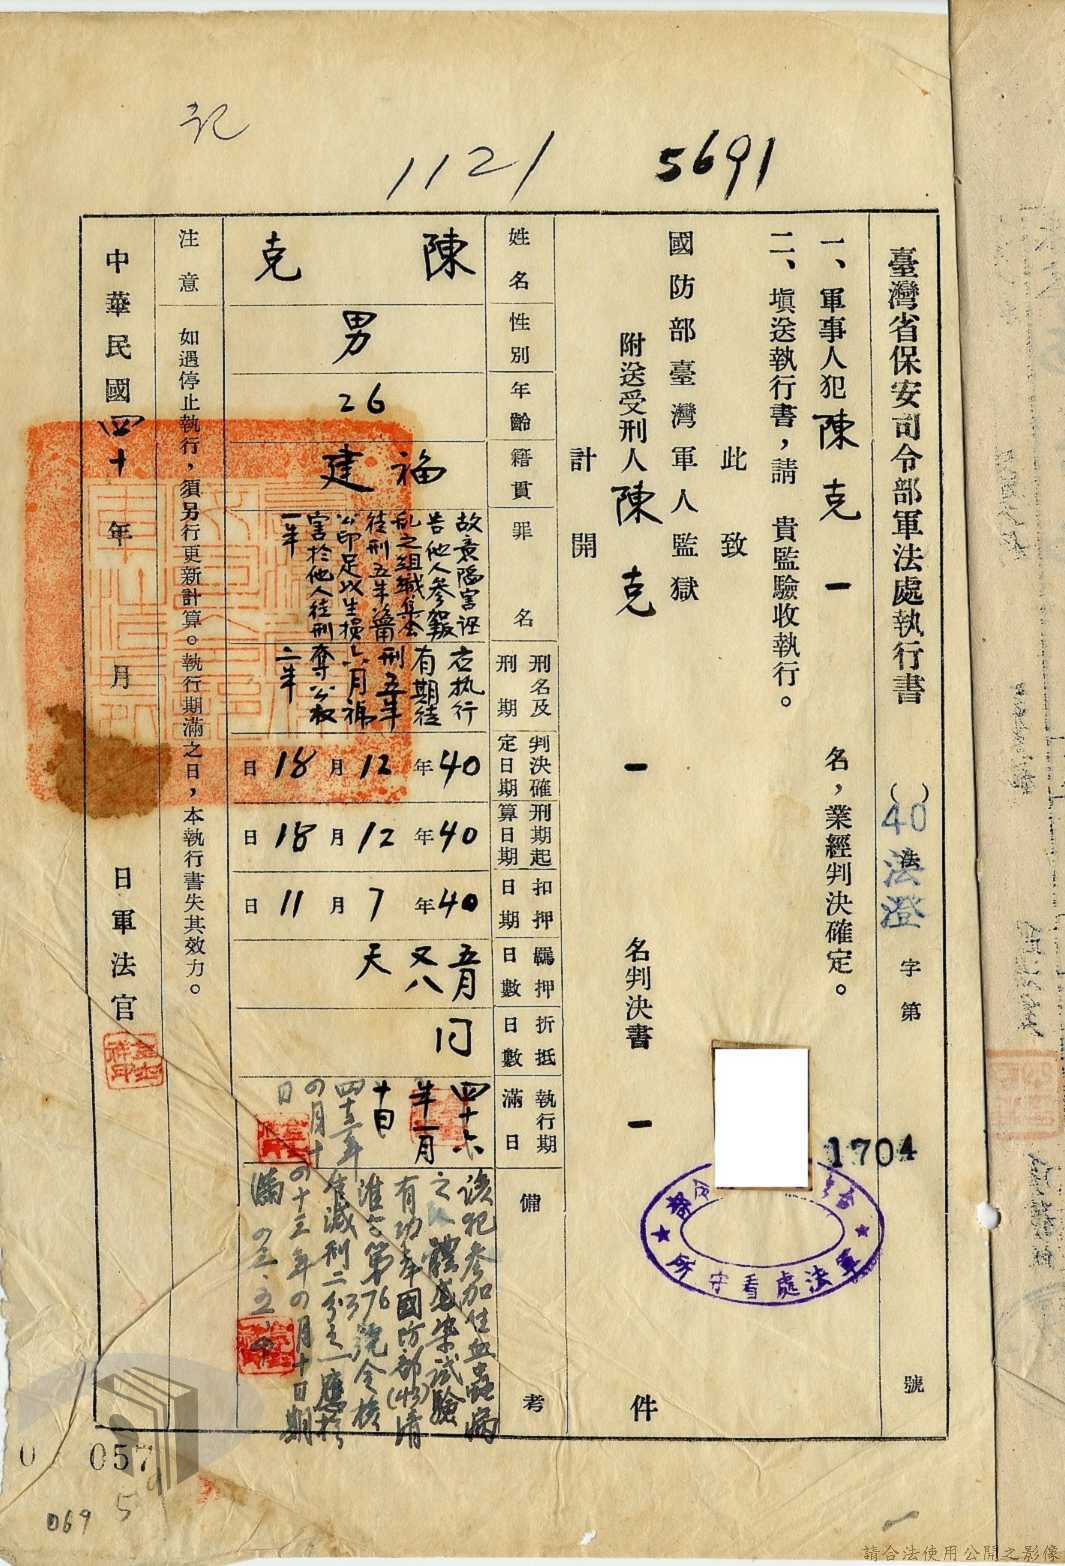 記
1121 5691
臺灣省保安司令部軍法處執行書 () 40 法澄 法 字第 1704 號
一、軍事人犯陳克一名,業經判決確定。
二、塡送執行書,請 貴監驗收執行。
此致
國防部臺灣軍人監獄
附送受刑人陳克一名判決書一件
計開
姓名 陳克
性別 男
年齡 26
籍貫 福建
罪名
故意陷害誣
告他人參加叛
亂之組織集會
徒刑五年
公印足以生損
害於他人徒刑
一年
刑名及刑期
右执行
有期徒
刑五年
六月褫
奪公权
二年
判決確定日期 40年12月18日
刑期起算日期 40年12月18日
扣押日期 40年7月11日
羈押日數 五月又八天
折抵日數 同
執行期滿日
四十六
年一月
十日
四十三年
四月十
日
備考
該犯參加住血蟲病
之人體感染試驗
有功奉國防部(43)清
準字第76號令核
准減刑三分之一應於
四十三年四月十日期
滿
注意 如遇停止執行,須另行更新計算。執行期滿之日,本執行書失其效力。
中華民國四十年 月 日軍法官
軍法處看守所
0 057
5
069
請合法使用公開之影像